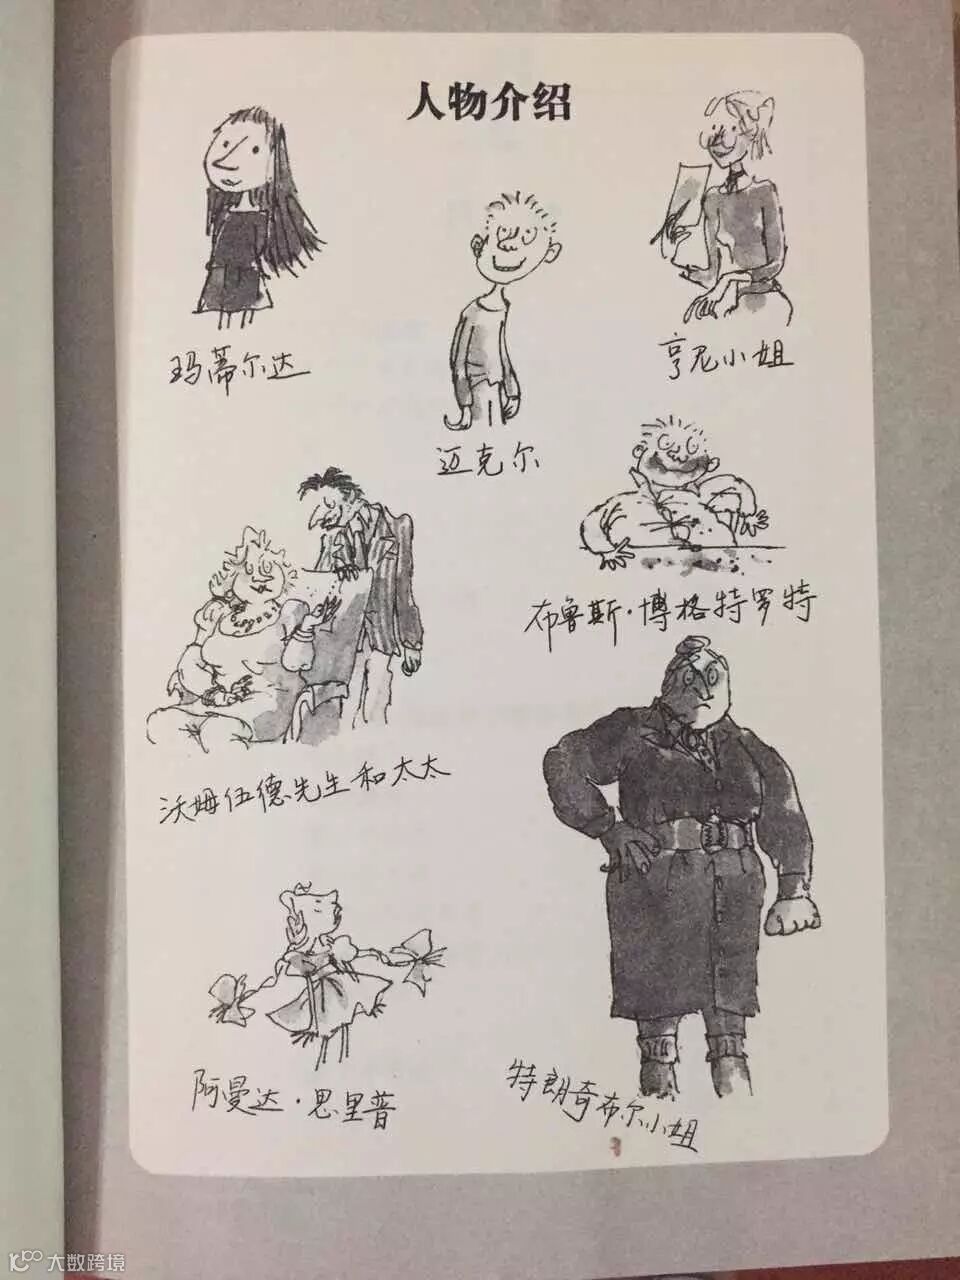 人物介绍
玛蒂尔达
亨尼小姐
迈克尔
布鲁斯·博格特罗特
沃姆伍德先生和太太
阿曼达·思里普
特朗奇布尔小姐
大数跨境